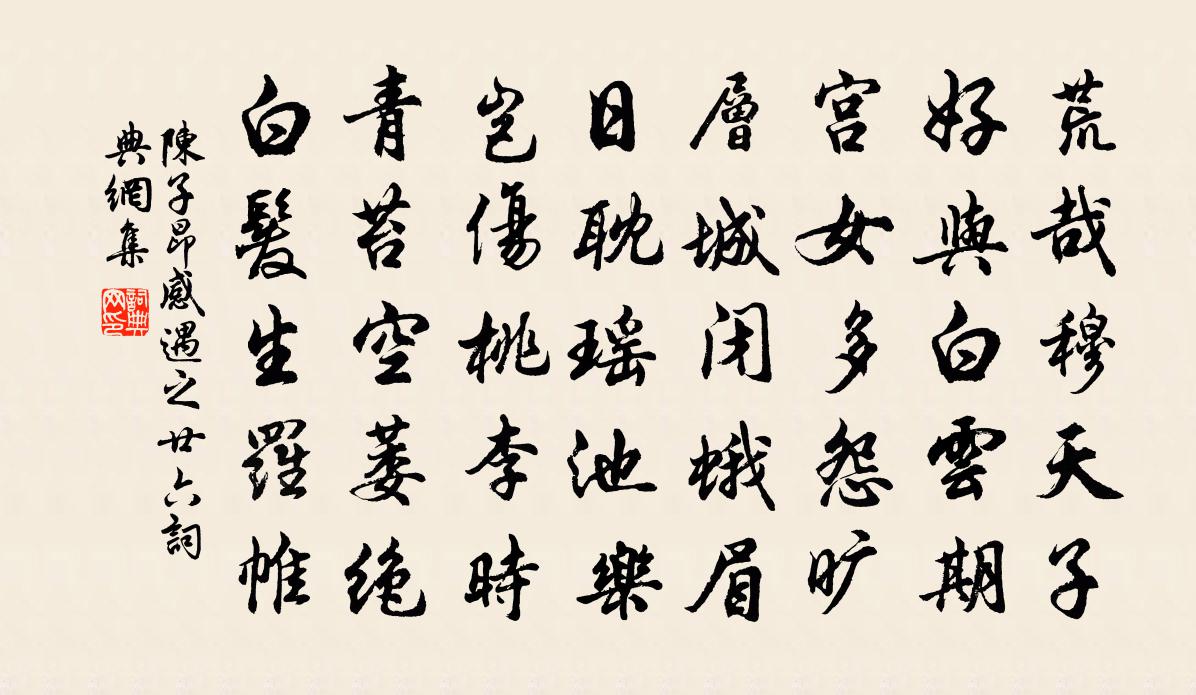 荒哉穆天子
好與白雲期
宮女多怨旷
層城闭蛾眉
日耽瑶池樂
岂傷桃李時
青苔空萎绝
白髮生羅帷
陳子昂感遇之廿六詞
典網集
詞典网印